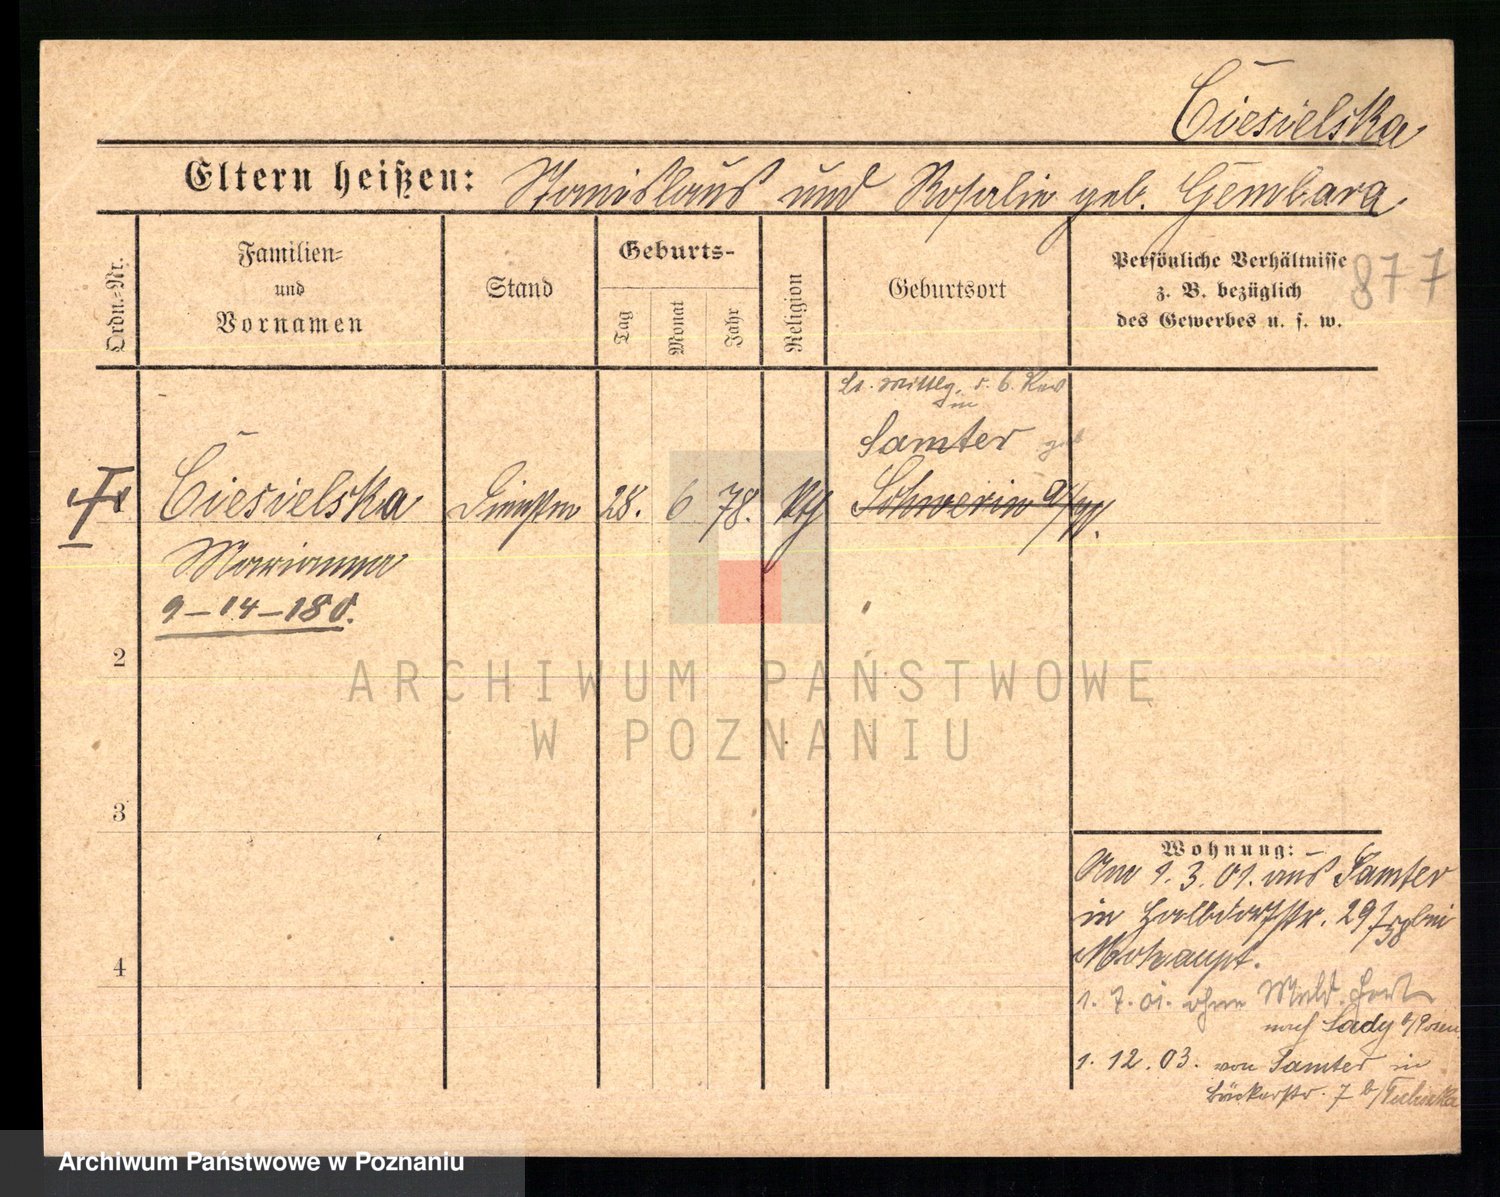 Ciesielska
Eltern heißen: Stanislaus und Rosalie geb. Gembara.
Ordn.-Nr.
Familien-
und
Vornamen
Stand
Geburts-
Tag
Monat
Jahr
Religion
Geburtsort
Persönliche Verhältnisse
z. B. bezüglich
des Gewerbes u. s. w.
877
lt. Mittlg. v. 6. Rev
in
Samter geb
Ciesielska
Marianna
9-14-180.
Dienstm
28. 6 78. kth
Schwerin a/W.
2
3
4
Wohnung:
Am 1.3.01. aus Samter
in Halbdorfstr. 29 bei
1.7.01. ohne Meld. fort
nach Sady b/Posen
1.12.03. von Samter in
Bäckerstr. 7 b/
ARCHIWUM PAŃSTWOWE
W POZNANIU
Archiwum Państwowe w Poznaniu